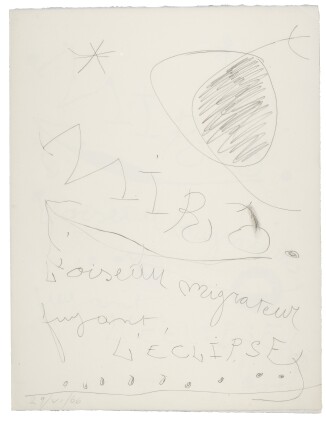 MIRÓ
L'oiseau migrateur
fuyant,
L'ECLIPSE